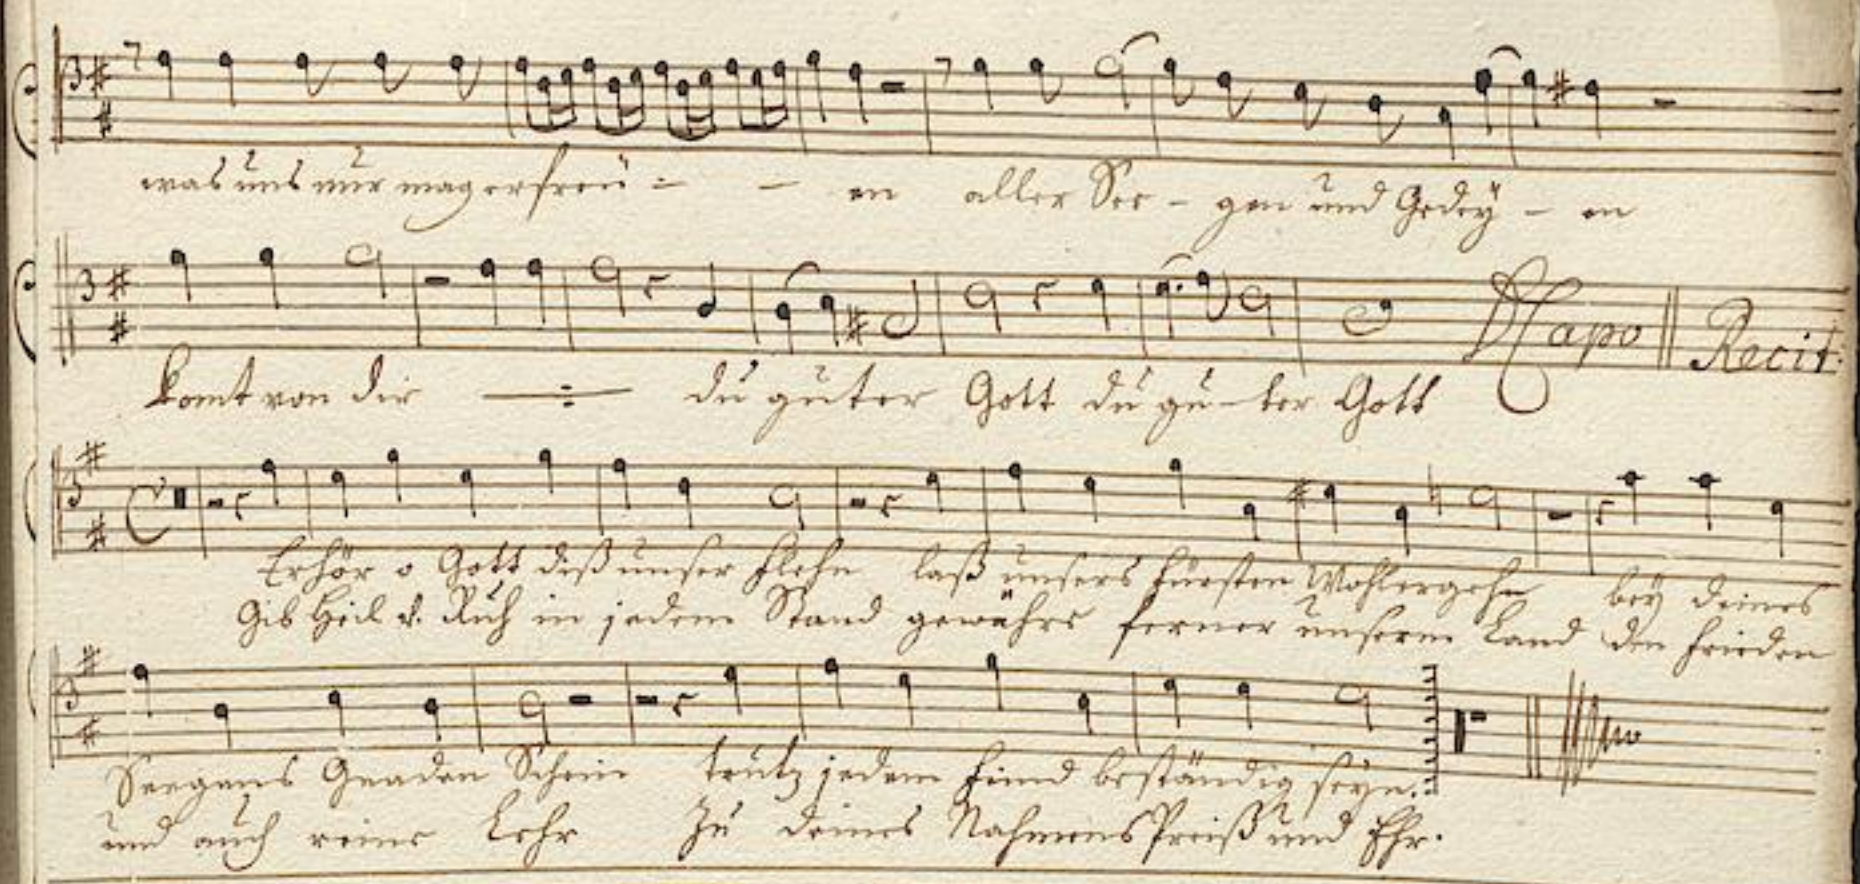 was uns nur mag erfreu - - en aller See - gen und Gedeÿ - en
komt von dir du guter Gott du gu - ter Gott DCapo Recit.
Erhör o Gott diß unser Flehn laß unsers Fürsten Wohlergehn beÿ deines
Gib Heil u. Ruh in jedem Stand gewährs ferner unserm Land den Frieden
Seegens Gnaden Schein trutz jedem Feind beständig seyn.
und auch reine Lehr Zu deines Nahmens Preiß und Ehr.